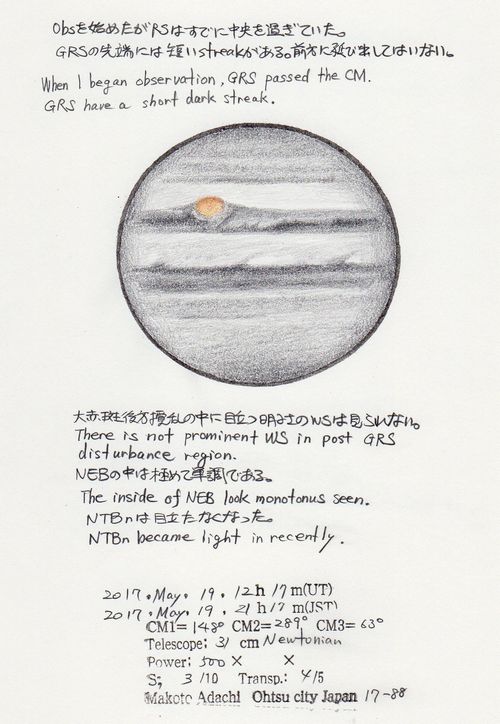 Obsを始めたがRSはすでに中央を過ぎていた。
GRSの先端には短いstreakがある。前方に延び出してはいない。
When I began observation, GRS passed the CM.
GRS have a short dark streak.
大赤斑後方撹乱の中に目立つ明るいWSは見られない。
There is not prominent WS in post GRS
disturbance region.
NEBの中は極めて単調である。
The inside of NEB look monotonus seen.
NTBnは目立たなくなった。
NTBn became light in recently.
2017.May.19. 12h 17m(UT)
2017.May.19. 21h17m(JST)
CM1=148° CM2=289° CM3=63°
Telescope: 31 cm Newtonian
Power: 500× ×
S; 3/10 Transp.: 4/5
Makoto Adachi Ohtsu city Japan 17-88